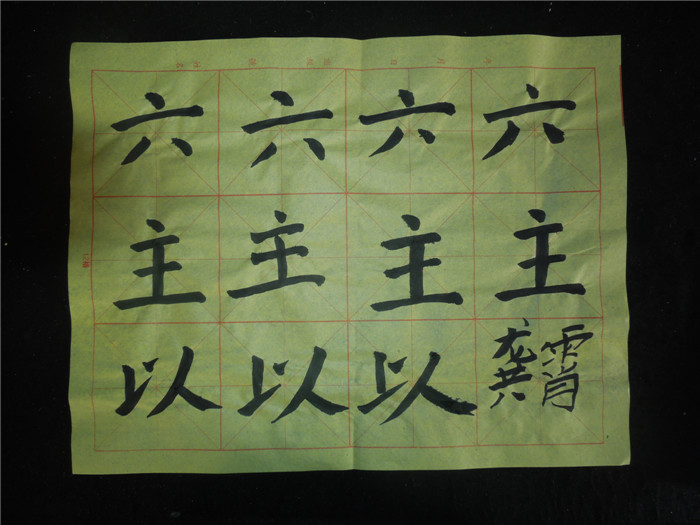 六六六六
主主主主
以以以龚霄